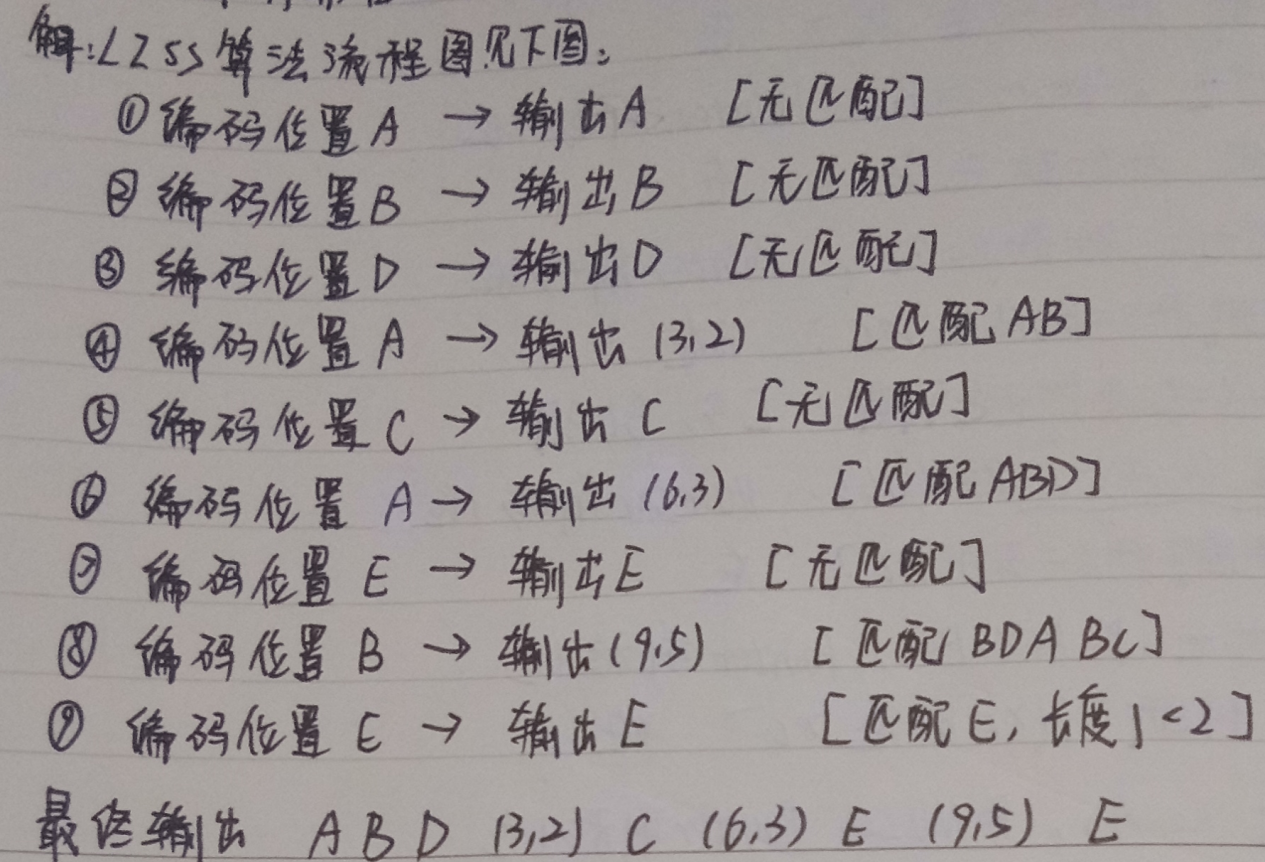 解:LZSS算法流程图见下图:
① 编码位置A → 输出A [无匹配]
② 编码位置B → 输出B [无匹配]
③ 编码位置D → 输出D [无匹配]
④ 编码位置A → 输出(3,2) [匹配AB]
⑤ 编码位置C → 输出C [无匹配]
⑥ 编码位置A → 输出(6,3) [匹配ABD]
⑦ 编码位置E → 输出E [无匹配]
⑧ 编码位置B → 输出(9,5) [匹配BDABC]
⑨ 编码位置E → 输出E [匹配E,长度1<2]
最终输出 A B D (3,2) C (6,3) E (9,5) E